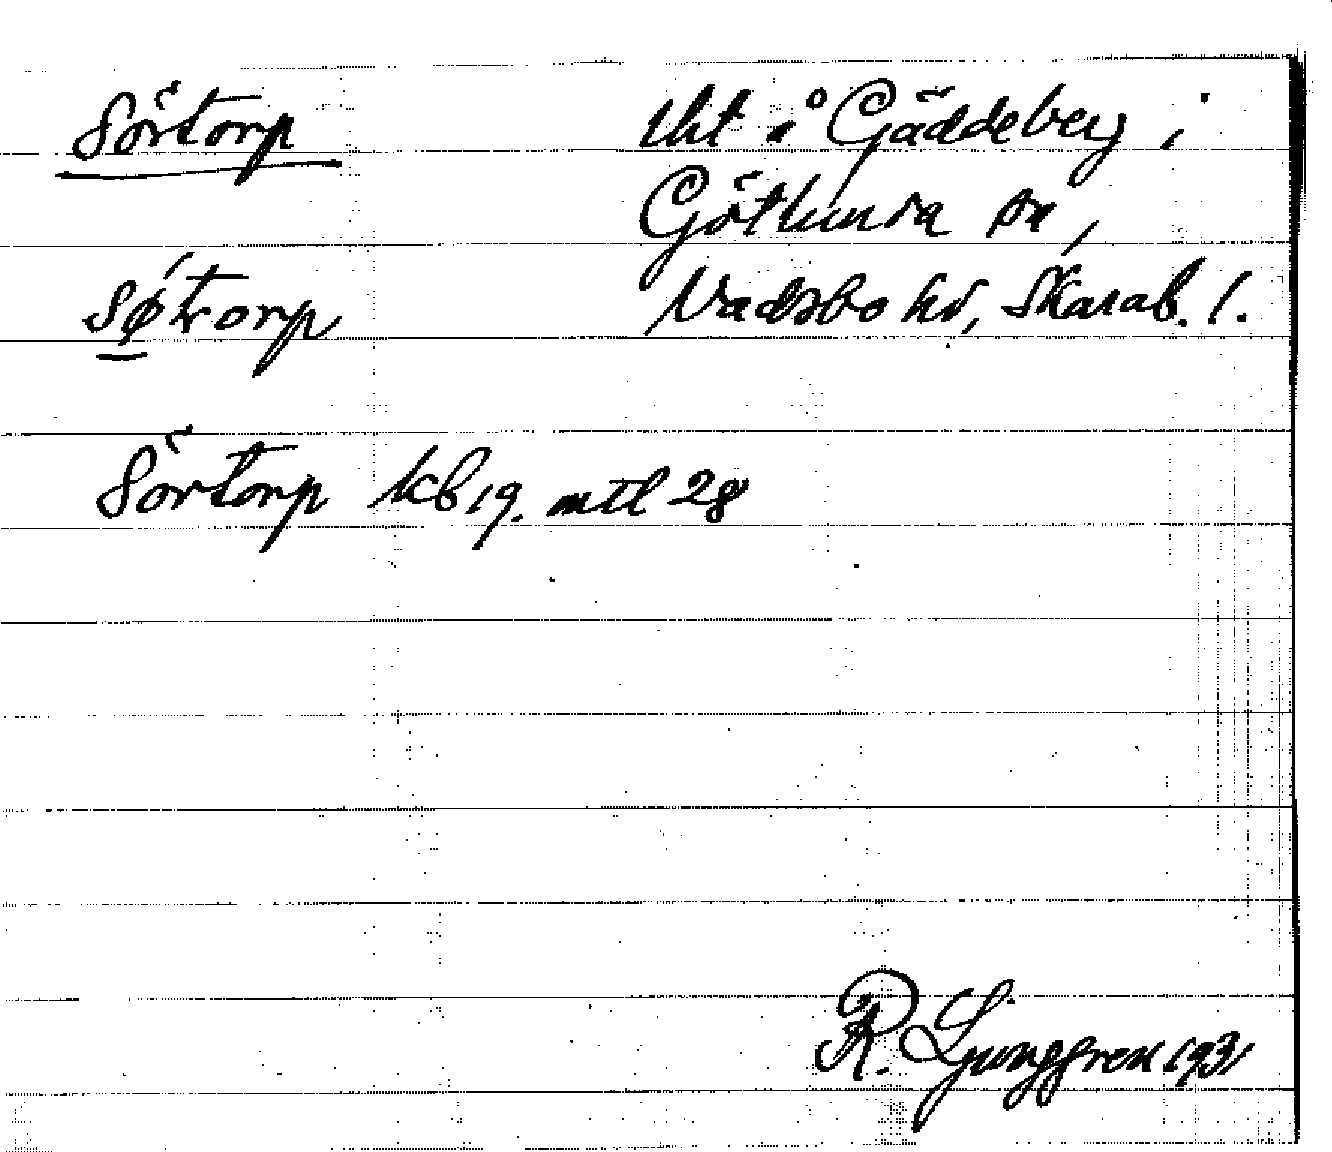 Sörtorp
tht å Gäddeberg i
Götlunda sn,
Vadsbo hd, Skarab. l.
Sörtorp kb 19. mtl 28
R. Ljunggren 1931